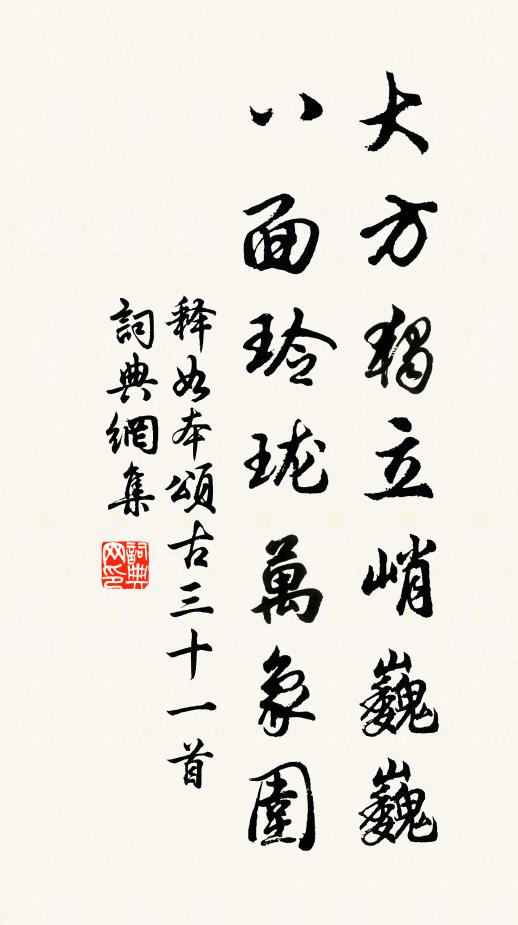 大方獨立峭巍巍
八面玲珑萬象圍
释如本頌古三十一首
詞典網集
詞典网印